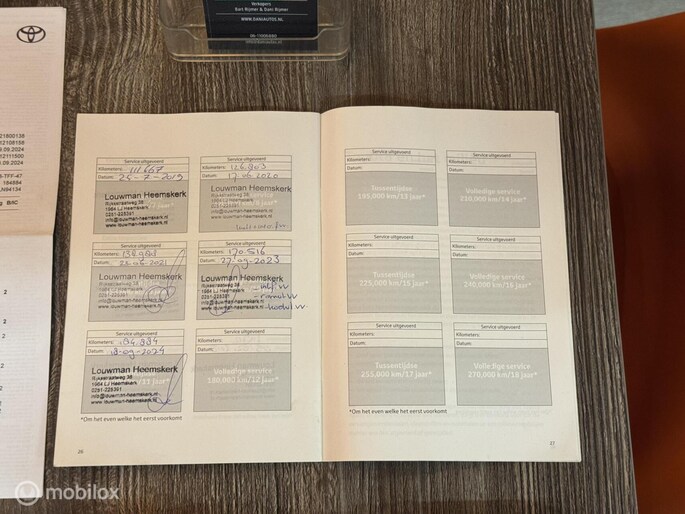 Verkopers
Bart Rijmer & Dani Rijmer
WWW.DANIAUTOS.NL
21800138
12108158
.09.2024
12111500
.09.2024
-TFF-47
184884
Service uitgevoerd
Kilometers: 111667
Datum: 25-7-2019
Louwman Heemskerk
Rijksstraatweg 38
1964 LJ Heemskerk
0251-228391
info@louwman-heemskerk.nl
www.louwman-heemskerk.nl
Service uitgevoerd
Kilometers: 126.903
Datum: 17-06-2020
Louwman Heemskerk
Rijksstraatweg 38
1964 LJ Heemskerk
0251-228391
info@louwman-heemskerk.nl
www.louwman-heemskerk.nl
Service uitgevoerd
Kilometers:
Datum:
Louwman Heemskerk
Rijksstraatweg 38
1964 LJ Heemskerk
0251-228391
info@louwman-heemskerk.nl
www.louwman-heemskerk.nl
Service uitgevoerd
Kilometers: 170.516
Datum: 27-09-2023
Louwman Heemskerk
Rijksstraatweg 38
1964 LJ Heemskerk
0251-228391
info@louwman-heemskerk.nl
www.louwman-heemskerk.nl
Service uitgevoerd
Kilometers: 184.884
Datum: 18-09-2024
Louwman Heemskerk
Rijksstraatweg 38
1964 LJ Heemskerk
0251-228391
info@louwman-heemskerk.nl
www.louwman-heemskerk.nl
Service uitgevoerd
Kilometers:
Datum:
Volledige service
180,000 km/12 jaar*
*Om het even welke het eerst voorkomt
26
Service uitgevoerd
Kilometers:
Datum:
Tussentijdse
195,000 km/13 jaar*
Service uitgevoerd
Kilometers:
Datum:
Volledige service
210,000 km/14 jaar*
Service uitgevoerd
Kilometers:
Datum:
Tussentijdse
225,000 km/15 jaar*
Service uitgevoerd
Kilometers:
Datum:
Volledige service
240,000 km/16 jaar*
Service uitgevoerd
Kilometers:
Datum:
Tussentijdse
255,000 km/17 jaar*
Service uitgevoerd
Kilometers:
Datum:
Volledige service
270,000 km/18 jaar*
*Om het even welke het eerst voorkomt
27
mobilox